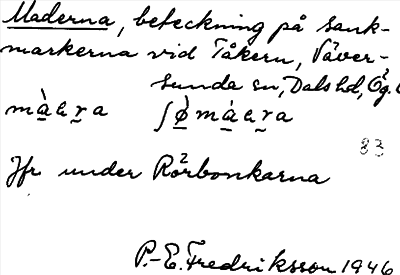 Maderna, beteckning på sank-
markerna vid Tåkern, Väver-
sunda sn, Dals hd, Ög.
83
Jfr under Rörbonkarna
P.-E. Fredriksson 1946